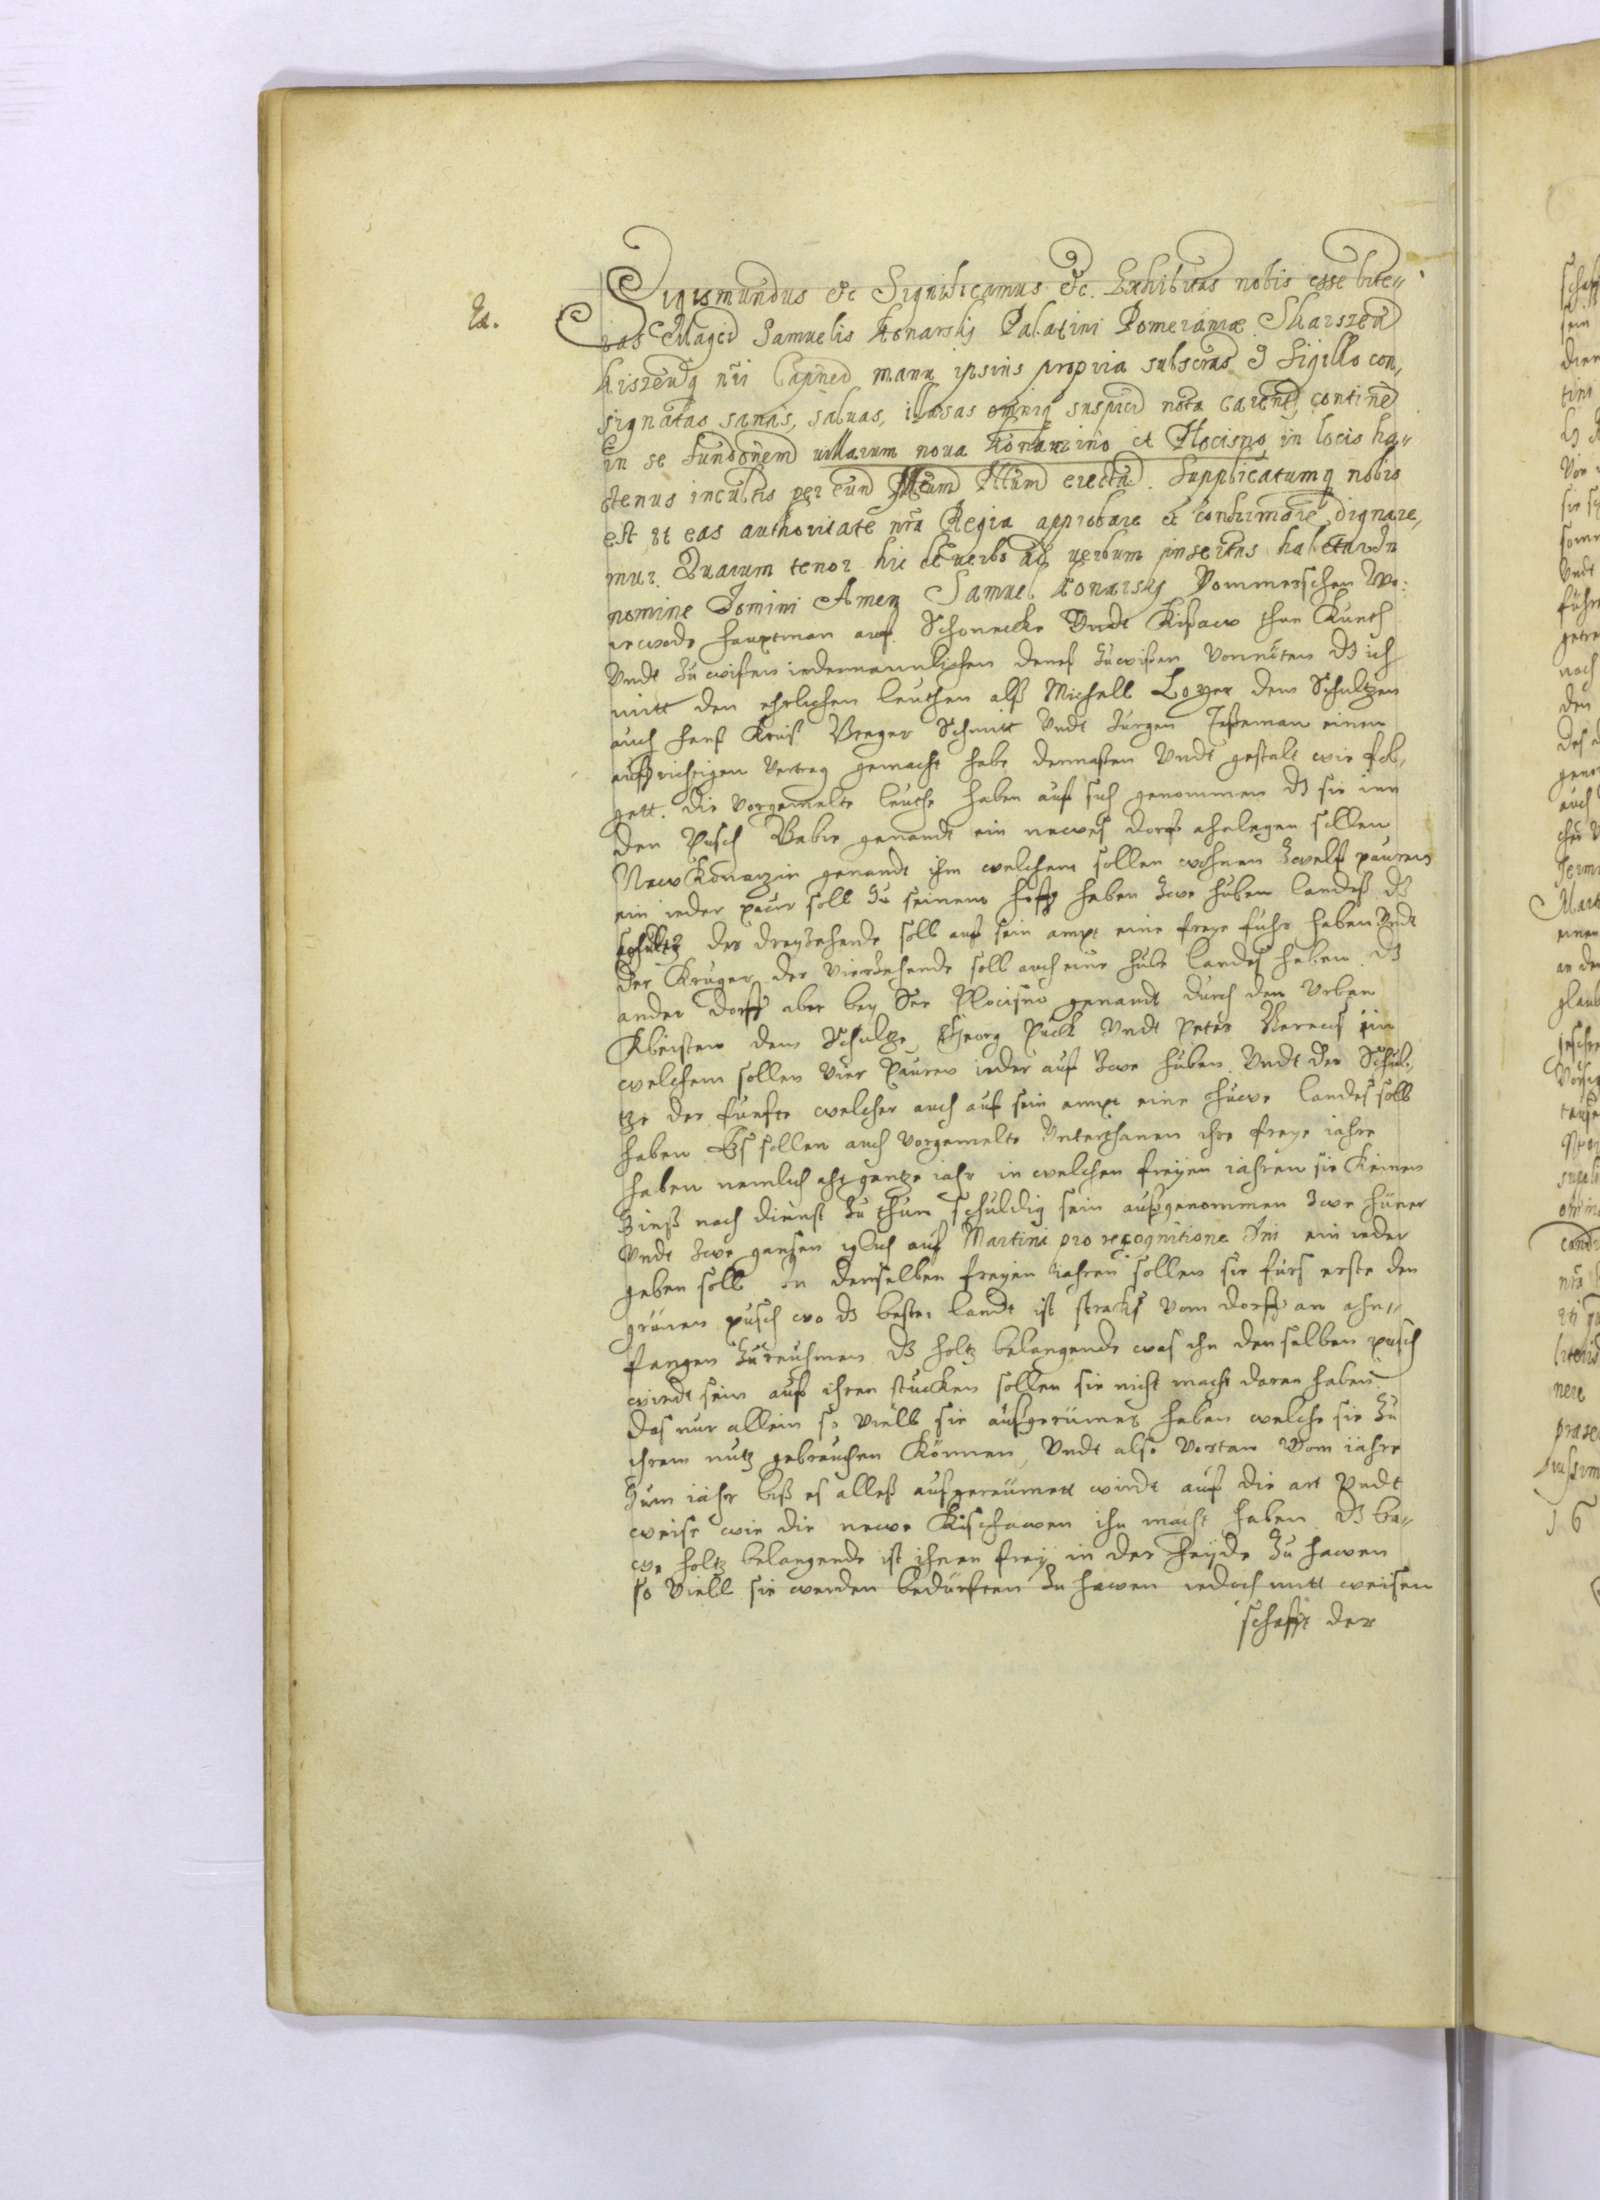 Ex.
Sigismundus etc Significamus etc. Exhibitas nobis esse lite„
ras Magci Samuelis Konarskj Palatini Pomeraniæ Skarszeu
Kiszeuq nri Capnei manu ipsius propria subscras et Sigillo con,
signatas sanas, saluas, illæsas omniq suspici nota carente, contine
in se fundonem villarum noua Konarzino et Plocisno in locis ha„
ctenus incultis per eund Mcum Pltum erecta. Supplicatumq nobis
est ut eas authoritate nra Regia approbare et confirmare dignare,
mur. Quarum tenor hic de verbo ad verbum insertus habetur. In
nomine Domini Amen Samuel Konarsky Pommerschen Wo:
iewode Hauptman auf Schonecke Vndt Kißaw thue Kunth
Vndt zu wißen iedermanniglichen denes zuwißen vonnöten dz ich
mitt den ehrlichen leuthen alß Michell Lozer dem Schultzen
auch Hans Kruß Breger Schmitt Vndt Jurgen Jeseman einen
auffrichtigen Vertrag gemacht habe dermaßen Vndt gestalt wie fol,
gett. Die vorgemelte leuthe haben auf sich genommen dz sie inn
den Pusch Babie genandt ein newes dorff ahnlegen sollen
New Konarzin genandt ihn welchem sollen wohnen Zwelf pauren
ein ieder paur soll zu seinem hoffe haben Zwe huben landeß dz
schultz der dreyzehende soll auf sein ampt eine freye huhe haben Vndt
der Kruger der Vierzehende soll auch eine hube landes haben. dz
ander dorff aber bey See Plocisno genandt durch den Vrban
Kbeisten dem Schultze, Georg Puck Vndt Peter Berens in
welchem sollen vier Pauren ieder auf Zwe huben Vndt der Schul„
tze der funfte welcher auch auf sein ampt eine Huwe landes soll
haben Es sollen auch vorgemelte Unterthanen ihre freye iahre
haben nemlich acht gantze iahr in welchen freyen iahren sie Keinen
Zinß noch dienst zu thun schuldig sein außgenommen Zwe hüner
Vndt Zwe gansen iglich auf Martini pro recognitione Dni ein ieder
geben soll In denselben freyen iahren sollen sie fürs erste den
grünen pusch wo dz beste landt ist stracks vom dorff an ahn„
fangen zu reuhmen dz holtz belangende was ihn denselben pusch
wirdt sein auf ihren stucken sollen sie nicht macht daran haben
das nur allein so viell sie aufgerümet haben welche sie zu
ihrem nutz gebrauchen Können, Vndt also vortan vom iahre
zum iahr biß es alleß aufgereümett wirdt auf die art Vndt
weise wie die newe Kischawen ihn macht haben dz bu„
we holtz belangende ist ihnen frey in der Heyde zu hawen
so viell sie werden bedürfften zu hawen iedoch mitt weisen
schafft der